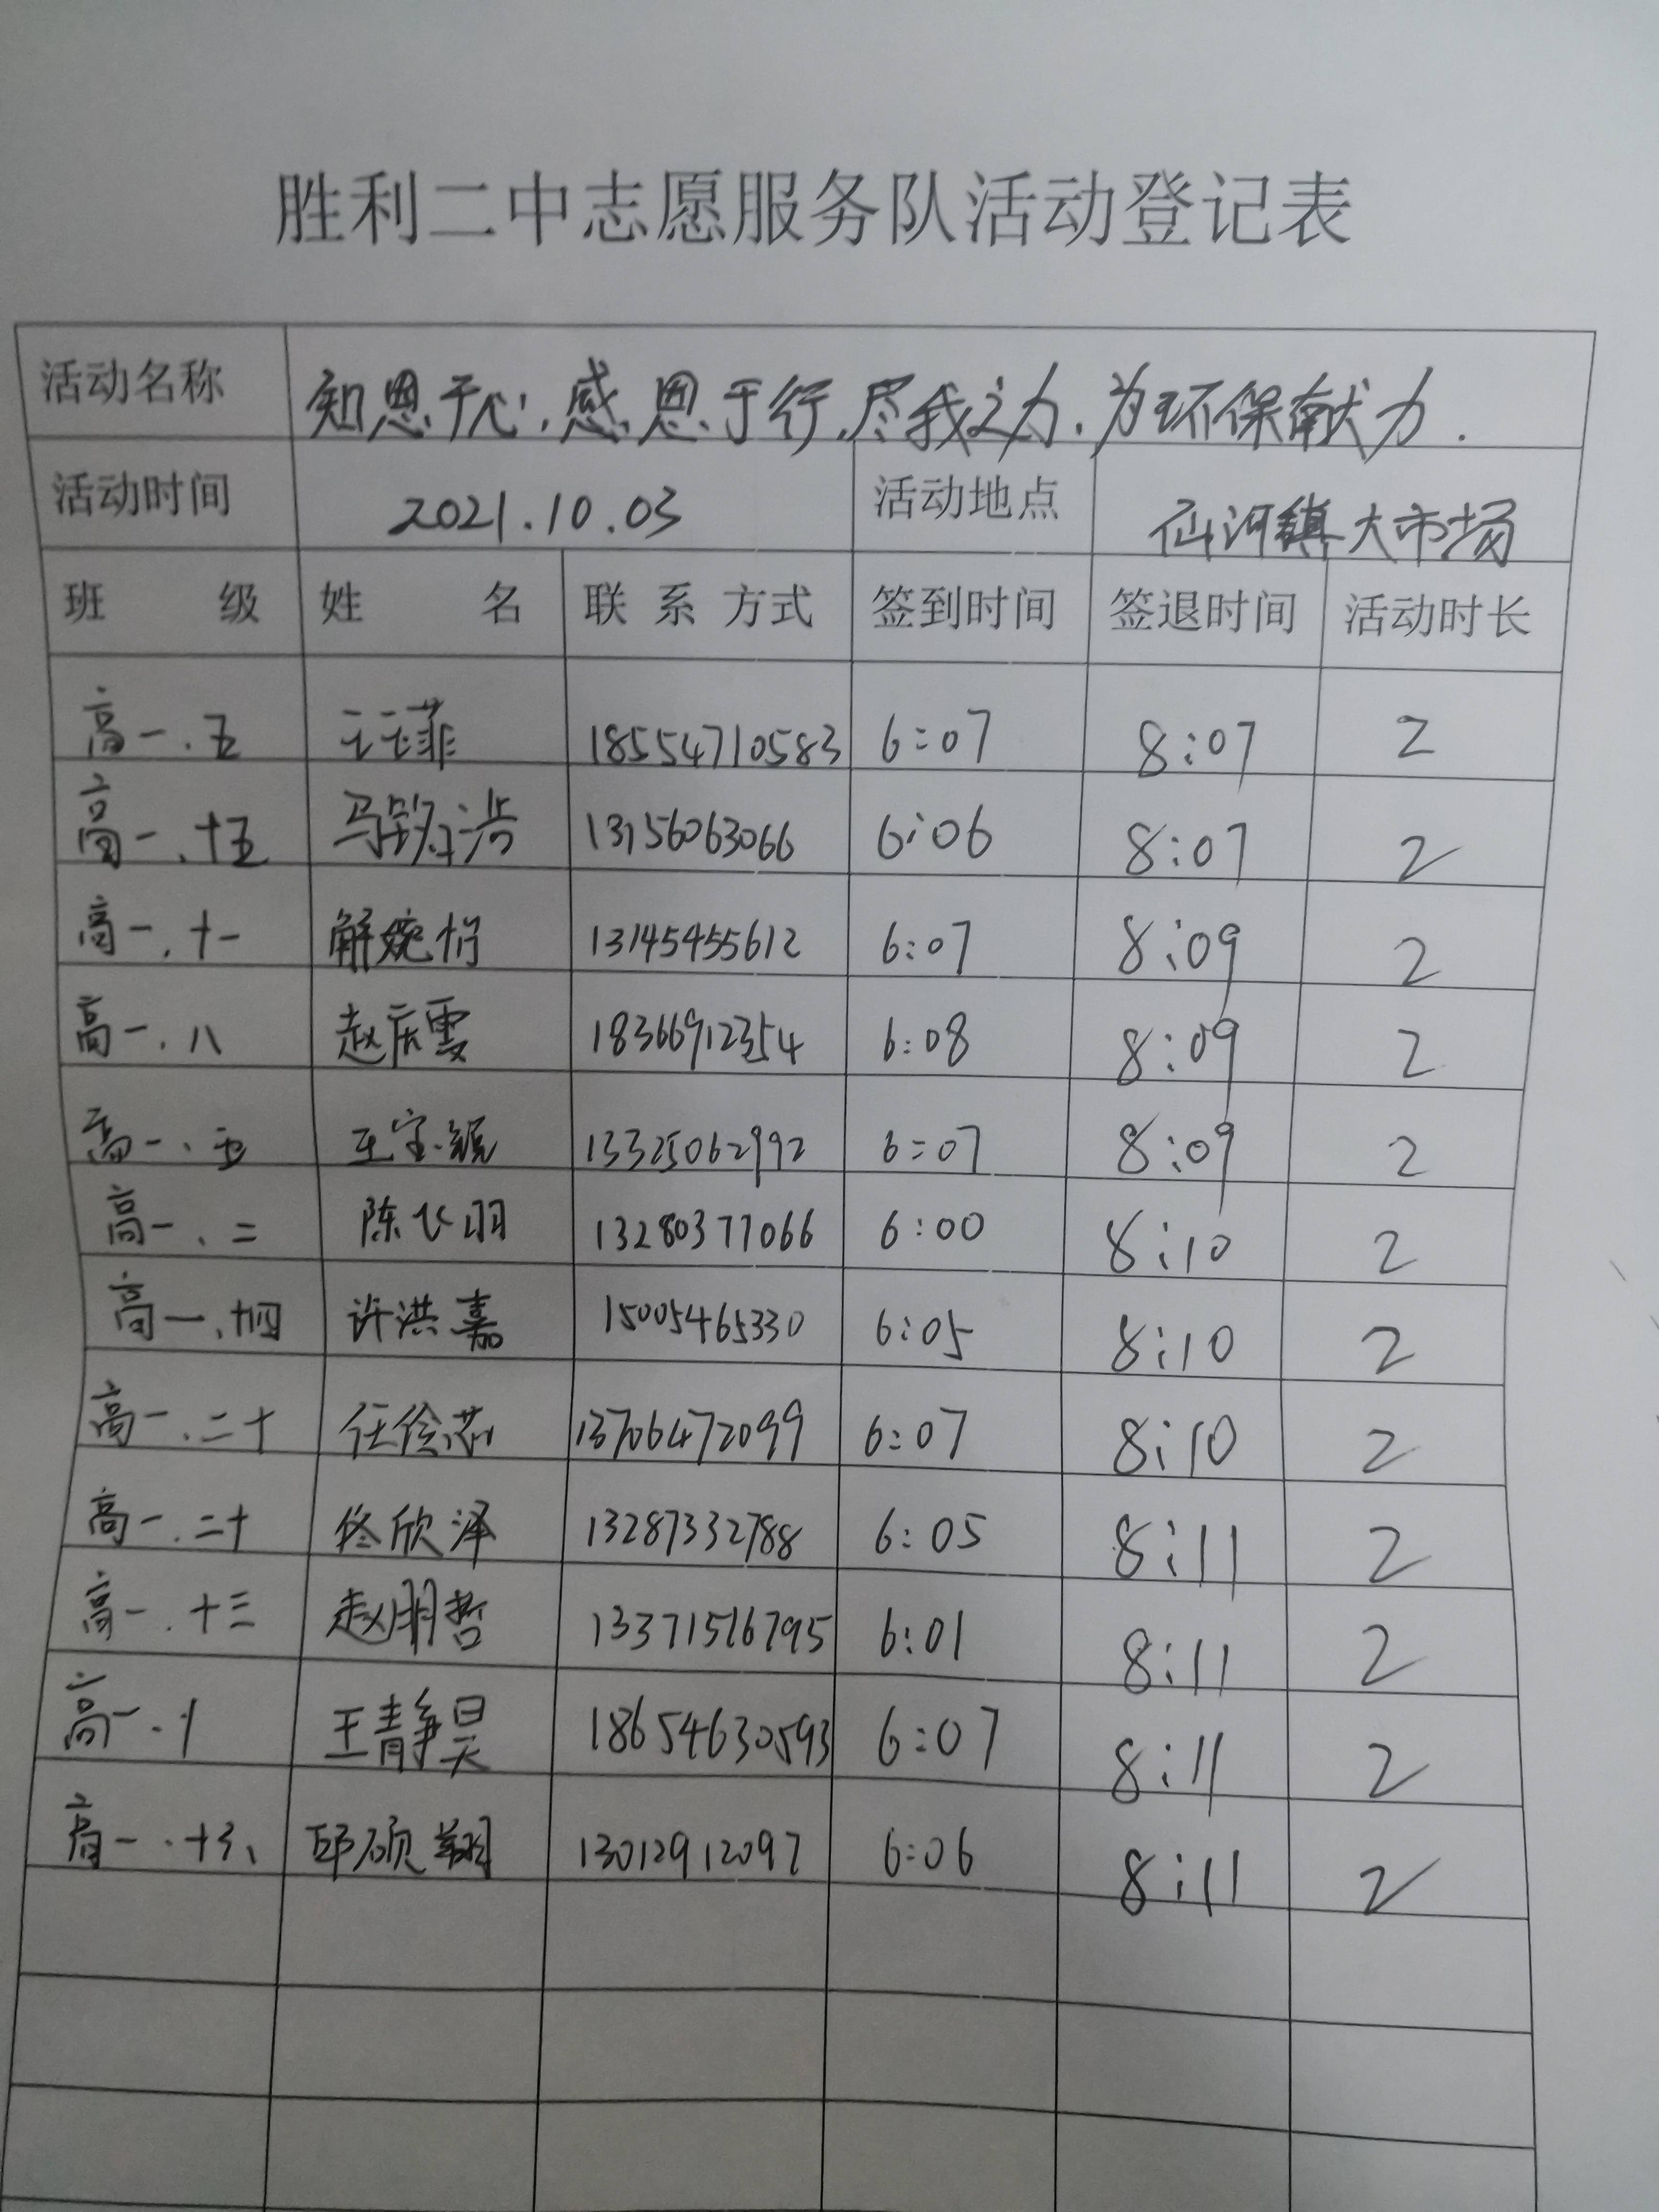 胜利二中志愿服务队活动登记表
活动名称 知恩于心,感恩于行,尽我之力,为环保献力.
活动时间 2021.10.03 活动地点 仙河镇大市场
班 级 姓 名 联 系 方式 签到时间 签退时间 活动时长
高一.五 18554710583 6:07 8:07 2
高一.十五 马 浩 13156063066 6:06 8:07 2
高一.十一 解婉怡 13145455612 6:07 8:09 2
高一.八 赵庆雯 18366912354 6:08 8:09 2
高一.五 王宝毓 13325062992 6:07 8:09 2
高一、二 陈飞羽 13280377066 6:00 8:10 2
高一.十四 许洪嘉 15005465330 6:05 8:10 2
高一.二十 任 13706472099 6:07 8:10 2
高一.二十 佟欣泽 13287332788 6:05 8:11 2
高一.十三 赵明哲 13371516795 6:01 8:11 2
高一.十 王静昊 18654630593 6:07 8:11 2
高一. 邱硕翔 13012912097 6:06 8:11 2